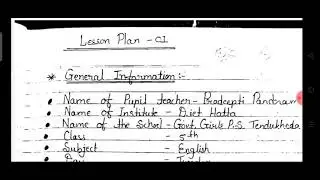 Lesson Plan - 01
* General Information:-
• Name of Pupil teacher - Pradeepti Pandram
• Name of Institute - Diet Hatta
• Name of the School - Govt. Girls P.S. Tendukheda
• Class - 5th
• Subject - English